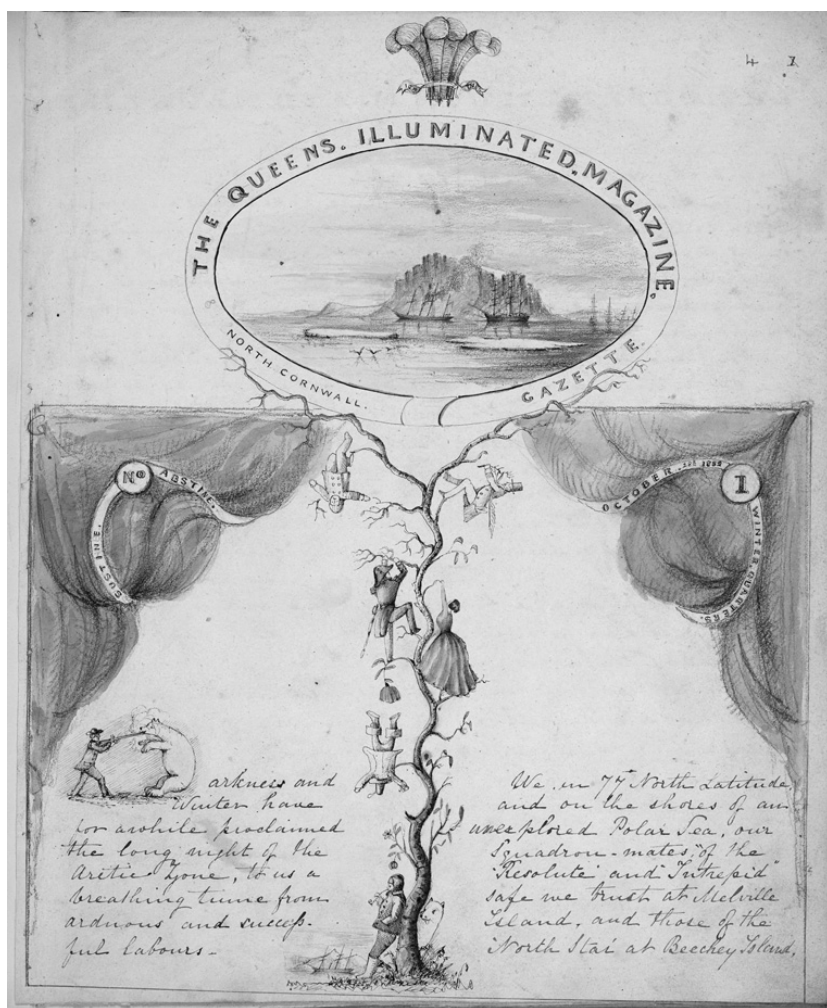 4 1
THE QUEENS. ILLUMINATED. MAGAZINE.
NORTH CORNWALL. GAZETTE.
No
SUSTINE. ABSTINE.
OCTOBER. 1852
1
WINTER. QUARTERS.
arkness and
Winter have
for awhile proclaimed
the long night of the
Arctic Zone, to us a
breathing time from
arduous and success-
ful labours -
We in 77° North Latitude,
and on the shores of an
unexplored Polar Sea, our
Squadron-mates, of the
"Resolute and Intrepid"
safe we trust at Melville
Island, and those of the
'North Star' at Beechey Island,